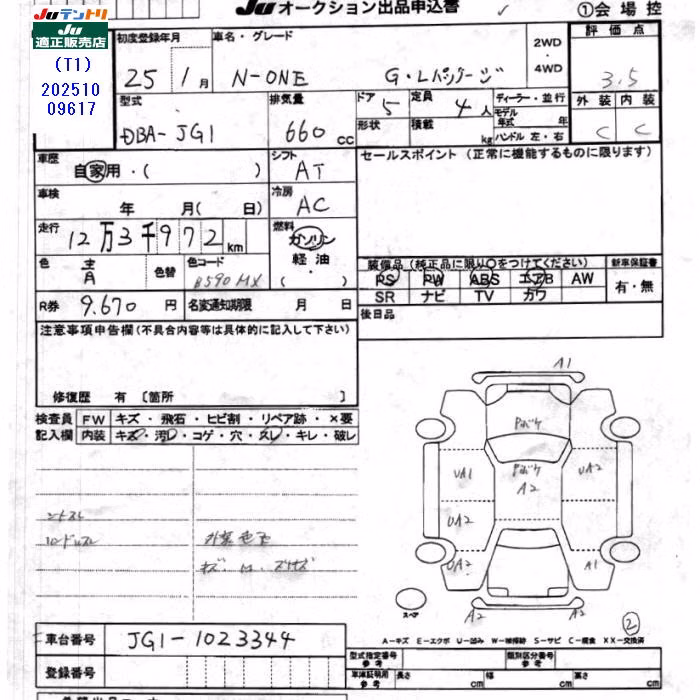 Juテントリ
適正販売店
(T1)
202510
09617
Juオークション出品申込書
①会場控
初度登録年月
25年 1月
車名・グレード
N-ONE G・Lパッケージ
2WD
・
4WD
評価点
3.5
型式
DBA-JG1
排気量
660 cc
ドア
5
定員
4人
ディーラー・並行
モデル年式 年
形状
積載 kg
ハンドル 左・右
外装 内装
C C
車歴
自家用・( )
シフト
AT
セールスポイント(正常に機能するものに限ります)
車検
年 月( 日)
冷房
AC
走行
12万3千972km
燃料
ガソリン
軽油・
( )
色
色替
色コード
B590MX
装備品(純正品に限り○をつけてください)
新車保証書
PS PW ABS エアB AW
SR ナビ TV カワ
有・無
R券
9.670円
名変通知期限 月 日
後日品
注意事項申告欄(不具合内容等は具体的に記入して下さい)
修復歴 有 〔箇所 〕
検査員
記入欄
FW キズ・飛石・ヒビ割・リペア跡・×要
内装 キズ・汚レ・コゲ・穴・スレ・キレ・破レ
A1
Pボケ
Pボケ
A2
UA1
UA2
UA2
UA2
A1
A2
A2
スペア
②
A-キズ E-エクボ U-凹み W-補修跡 S-サビ C-腐食 XX-交換済
車台番号
JG1-1023344
登録番号
型式指定番号
参考
類別区分番号
参考
車検証明用
参考
長さ cm
幅 cm
高さ cm